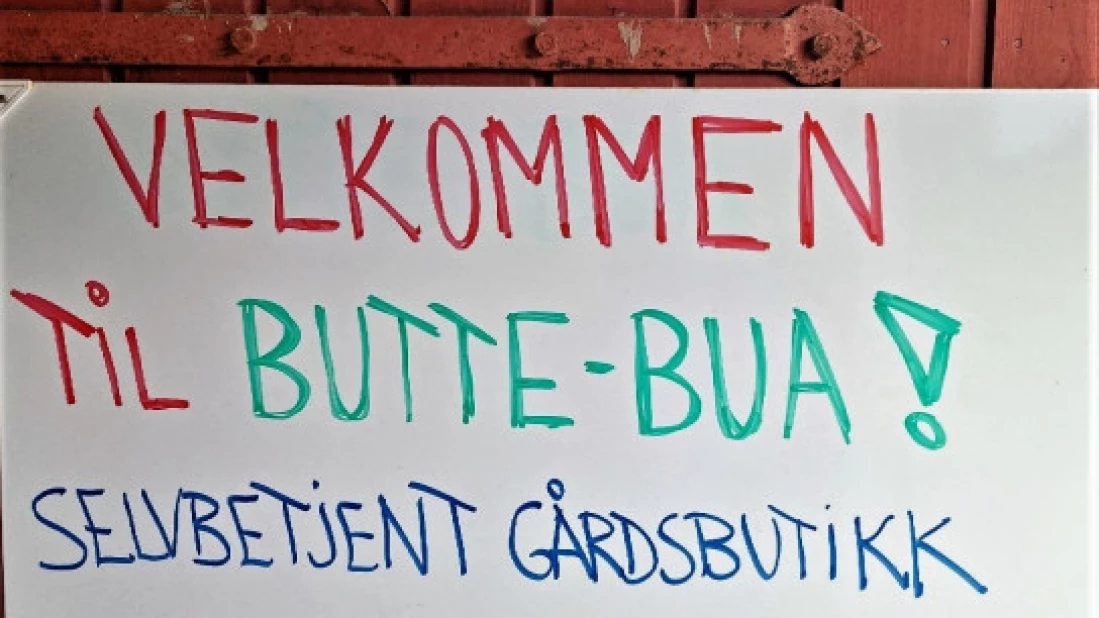 VELKOMMEN
TiL BUTTE-BUA!
SELVBETJENT GÅRDSBUTiKK